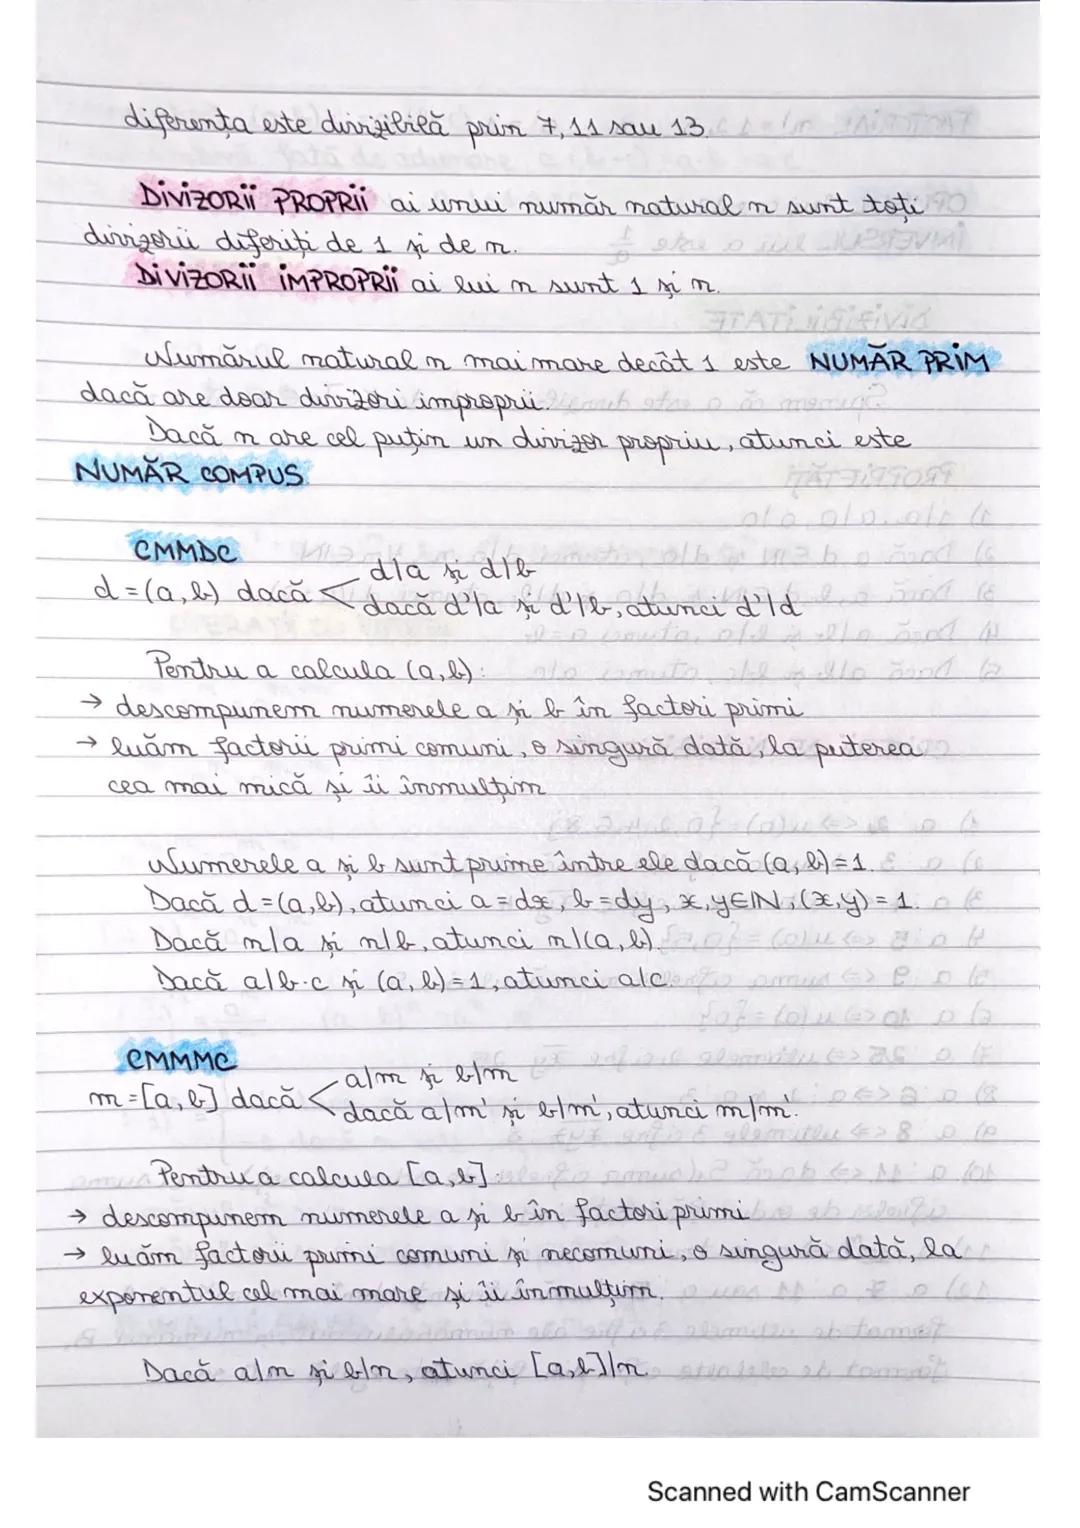 diferența este divizibilă prin 7, 11 sau 13.
DIVIZORII PROPRII ai unui număr natural n sunt toți
divizorii diferiți de 1 și de n.
DIVIZORII IMPROPRII ai lui n sunt 1 și n.
Numărul natural n mai mare decât 1 este NUMĂR PRIM
dacă are doar divizori improprii.
Dacă n are cel puțin un divizor propriu, atunci este
NUMĂR COMPUS.
CMMDC
d|a și d|b
d = (a, b) dacă <
dacă d'|a și d'|b, atunci d'|d
Pentru a calcula (a, b):
→ descompunem numerele a și b în factori primi
→ luăm factorii primi comuni, o singură dată, la puterea
cea mai mică și îi înmulțim
Numerele a și b sunt prime între ele dacă (a, b) = 1.
Dacă d = (a, b), atunci a = dx, b = dy, x, y ∈ ℕ, (x, y) = 1.
Dacă n|a și n|b, atunci n|(a, b).
Dacă a|b·c și (a, b) = 1, atunci a|c.
CMMMC
a|m și b|m
m = [a, b] dacă <
dacă a|m' și b|m', atunci m|m'.
Pentru a calcula [a, b]:
→ descompunem numerele a și b în factori primi
→ luăm factorii primi comuni și necomuni, o singură dată, la
exponentul cel mai mare și îi înmulțim.
Dacă a|n și b|n, atunci [a, b]|n.
Scanned with CamScanner